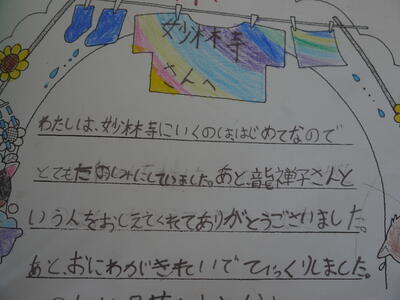 妙林寺
さんへ
わたしは、妙林寺にいくのははじめてなので
とてもたのしみにしていました。あと、龍禅子さんと
いう人をおしえてくれてありがとうございました。
あと、おにわがきれいでびっくりしました。